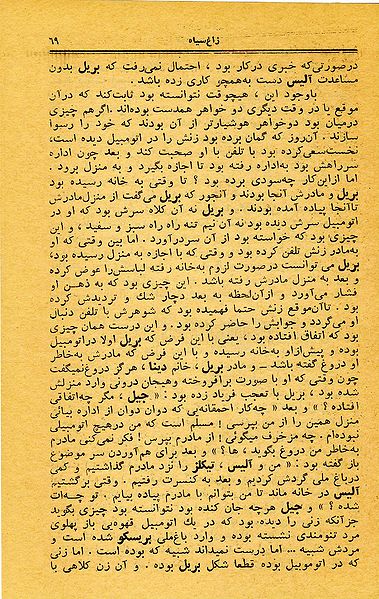 زاغ سیاه
۶۹
درصورتی‌که خبری درکار بود ، احتمال نمی‌رفت که بریل بدون
مساعدت آلیس دست به‌همچو کاری زده باشد .
باوجود این ، هیچوقت نتوانسته بود ثابت‌کند که درآن
موقع یا در وقت دیگری دو خواهر همدست بوده‌اند . اگرهم چیزی
درمیان بود دوخواهر هوشیارتر از آن بودند که خود را رسوا
سازند . آن‌روز که گمان برده بود زنش را در اتومبیل دیده است،
نخست‌سعی‌کرده بود با تلفن با او صحبت کند و بعد چون اداره
سرراهش بود به‌اداره رفته بود تا اجازه بگیرد و به منزل برود .
اما ازاین‌کار چه‌سودی برده بود ؟ تا وقتی به خانه رسیده بود
بریل و مادرش آنجا بودند و آنجور که بریل می‌گفت از منزل‌مادرش
تاآنجا پیاده آمده بودند . و بریل نه آن کلاه سرش بود که او در
اتومبیل سرش دیده بود نه آن نیم تنه راه راه سبز و سفید ، و این
چیزی بود که خواسته بود از آن سردرآورد . اما بین وقتی که او
به‌مادر زنش تلفن کرده بود و وقتی که با اجازه به منزل رسیده بود،
بریل می توانست درصورت لزوم به‌خانه رفته لباسش‌را عوض کرده
و بعد به منزل مادرش رفته باشد . این چیزی بود که به ذهن او
فشار می‌آورد و ازآن‌لحظه به بعد دچار شك و تردیدش کرده
بود . تاآن‌موقع زنش حتما فهمیده بود که شوهرش با تلفن دنبال
او می‌گردد و جوابش را حاضر کرده بود . و این درست همان چیزی
بود که اتفاق افتاده بود، یعنی با این فرض که بریل اولا دراتومبیل
بوده و پیش‌ازاو به‌خانه رسیده و با این فرض که مادرش به‌خاطر
او دروغ گفته باشد ــ و مادر بریل ، خانم دینا ، هرگز دروغ‌نمیگفت
چون وقتی که او با صورت برافروخته وهیجان درونی وارد منزلش
شده بود ، بریل با تعجب فریاد زده بود : « جیل ، مگر چه‌اتفاقی
افتاده ؟ » و بعد « چه‌کار احمقانه‌یی که دوان دوان از اداره بیائی
منزل همین را از من بپرسی ! مسلم است که من درهیچ اتومبیلی
نبوده‌ام . چه مزخرف میگوئی ! از مادرم بپرس ! فکر نمی‌کنی مادرم
به‌خاطر من دروغ بگوید ، ها ؟ » و بعد برای هم‌آوردن سر موضوع
باز گفته بود : « من و آلیس ، تیکلز را نزد مادرم گذاشتیم و کمی
درباغ ملی گردش کردیم و بعد به کنسرت رفتیم . وقتی برگشتیم
آلیس در خانه ماند تا من بتوانم با مادرم پیاده بیایم . تو چه‌ات
شده ؟ » و جیل هرچه جان کنده بود نتوانسته بود چیزی بگوید
جزآنکه زنی را دیده بود که در یك اتومبیل قهوه‌یی باز پهلوی
مرد تنومندی نشسته بوده و وارد باغ‌ملی بریسکو شده است و
مردش شبیه ... اما درست نمیداند شبیه که بوده است . اما زنی
که در اتوموبیل بوده قطعا شکل بریل بوده . و آن زن کلاهی با